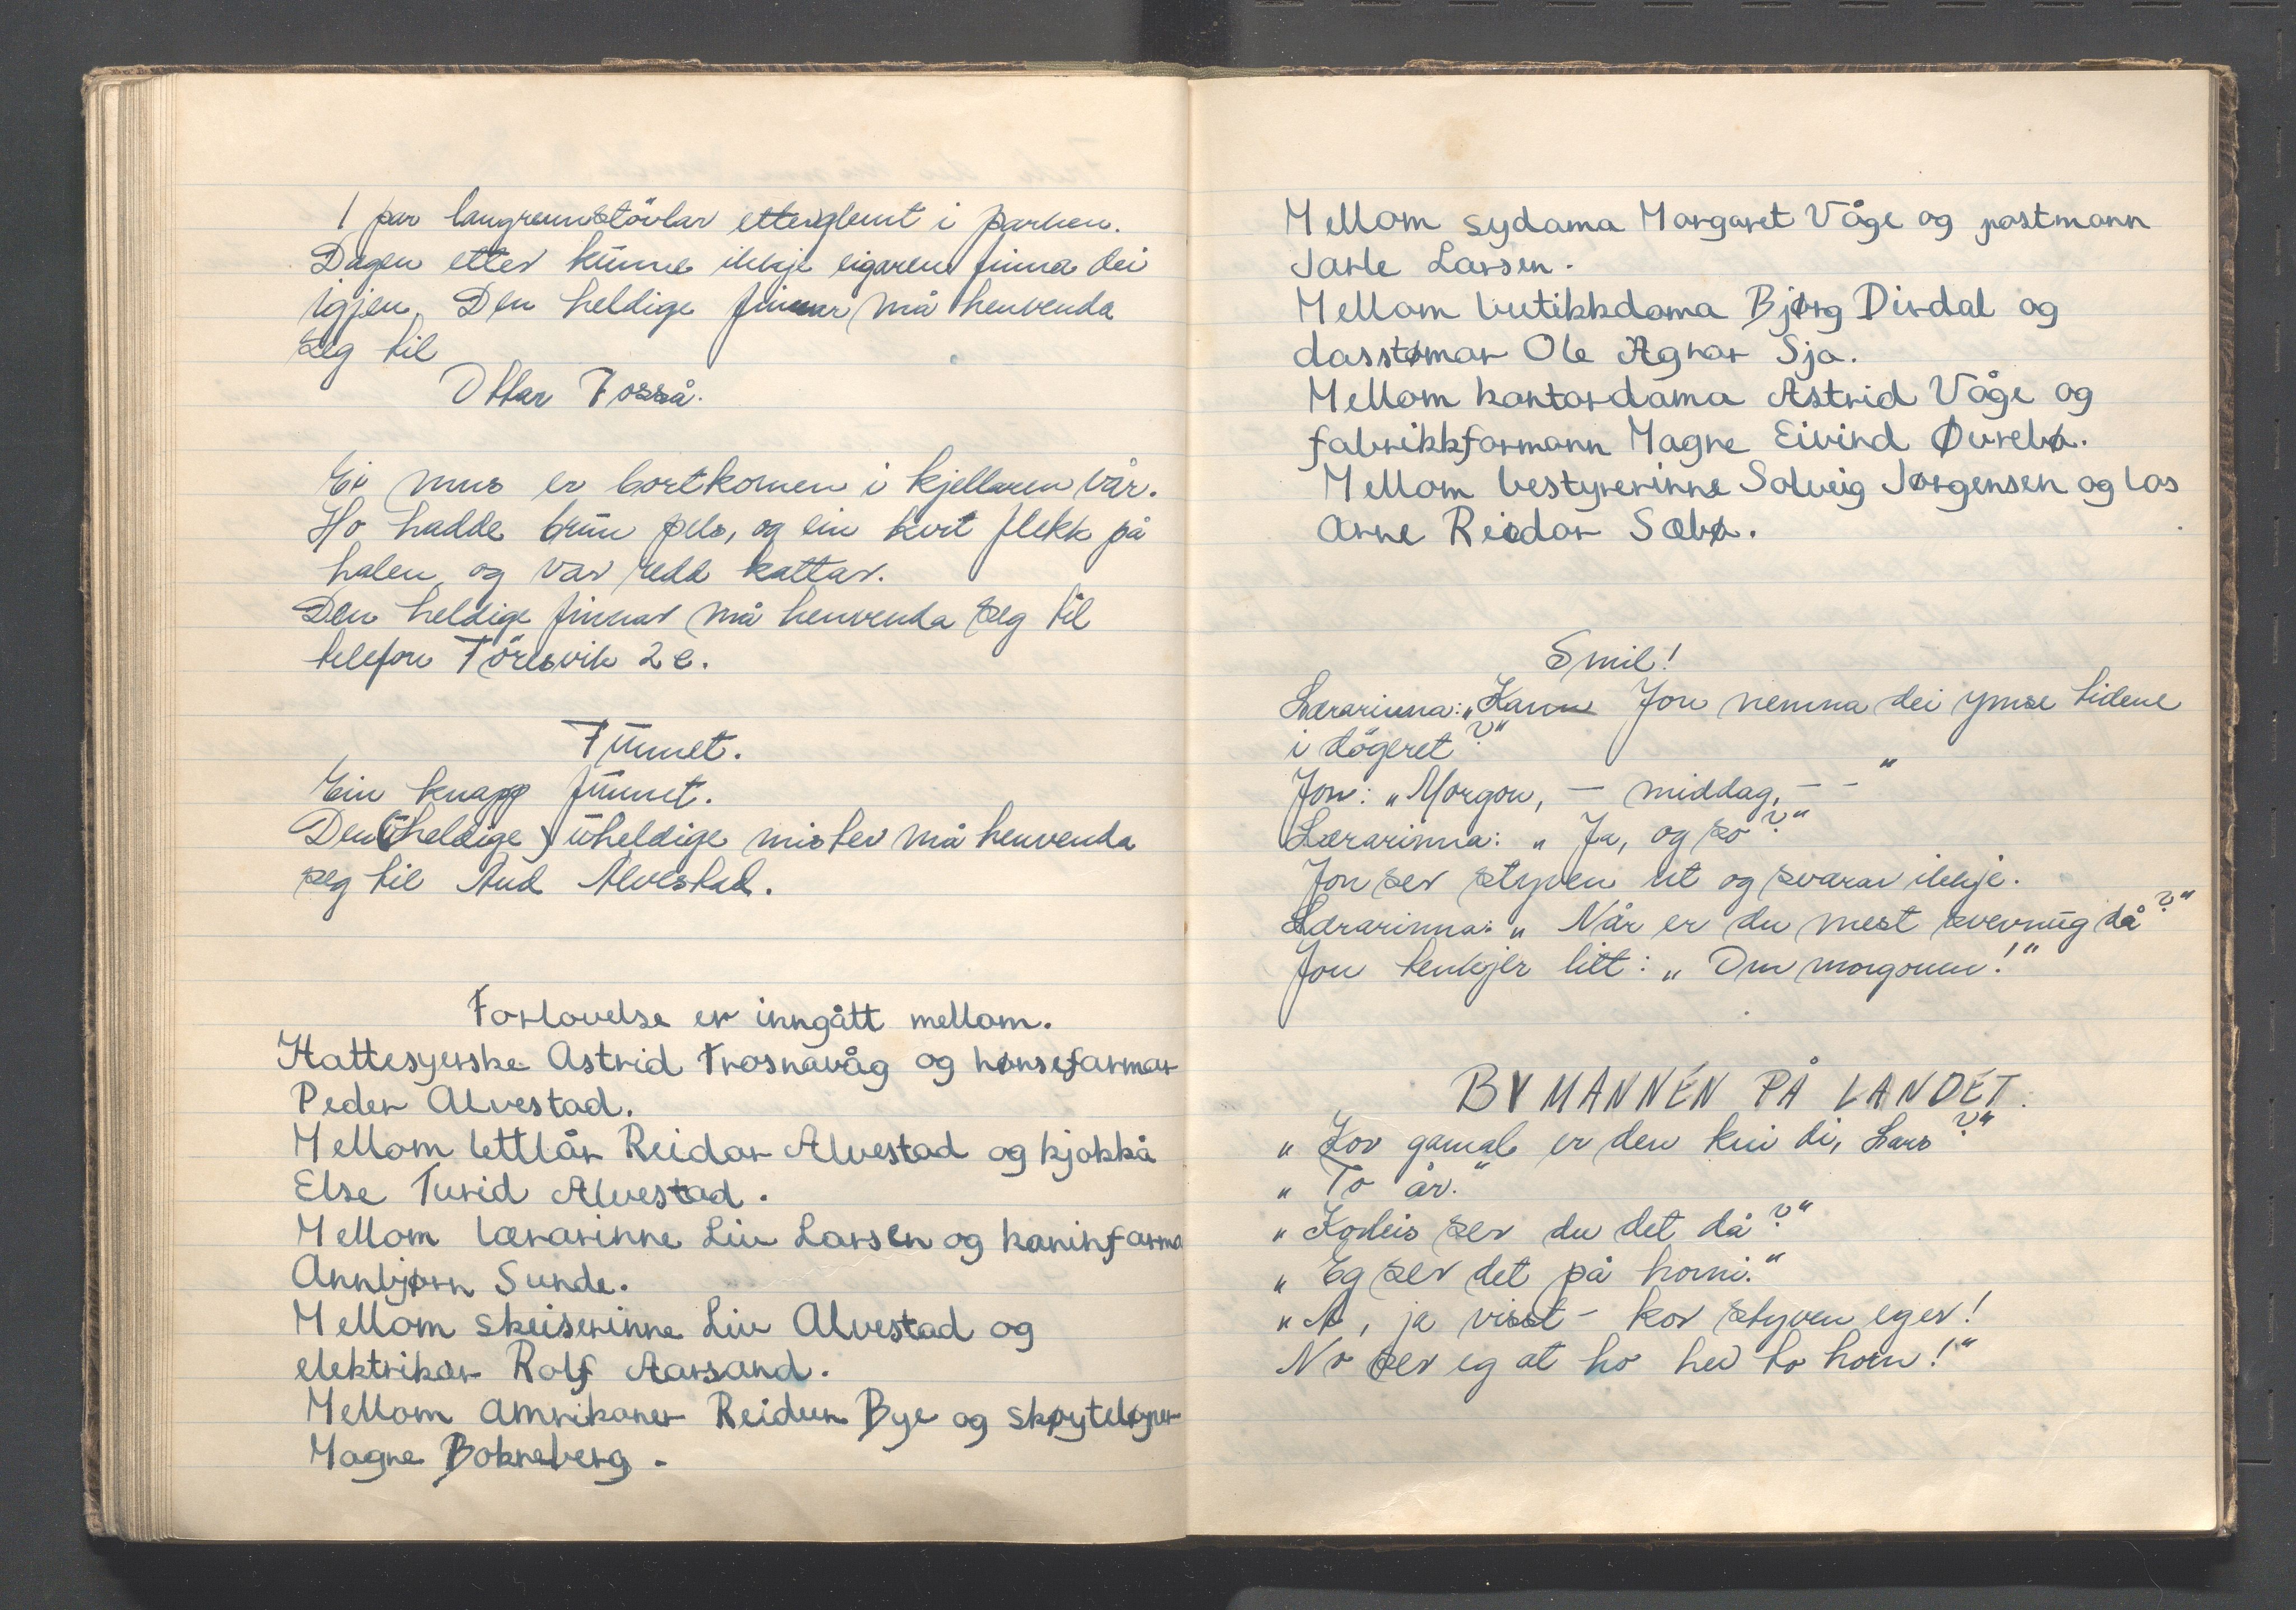 1 par langrennstövlar etterglemt i parken.
Dagen etter kunne ikkje eigaren finna dei
igjen. Den heldige finnar må henvenda
seg til
Ottar Fosså.
Ei mus er bortkomen i kjellaren vår.
Ho hadde brun pels, og ein kvit flekk på
halen, og var redd kattar.
Den heldige finnar må henvenda seg til
telefon Föresvik 2 e.
Funnet.
Ein knapp funnet.
Den (heldige) uheldige mister må henvenda
seg til Aud Alvestad.
Forlovelse er inngått mellom.
Hattesyerske Astrid Trosnavåg og hønsefarmar
Peder Alvestad.
Mellom lettlår Reidar Alvestad og kjokkå
Else Turid Alvestad.
Mellom lærarinne Liv Larsen og kaninfarma
Annbjørn Sunde.
Mellom skeiserinne Liv Alvestad og
elektrikar Rolf Aarsand.
Mellom amrikaner Reidun Bye og skøyteløper
Magne Bokneberg.
Mellom sydama Margaret Våge og postmann
Jarle Larsen.
Mellom butikkdama Bjørg Dirdal og
dasstømar Ole Agnar Sjo.
Mellom kontordama Astrid Våge og
fabrikkformann Magne Eivind Øvrebø.
Mellom bestyrerinne Solveig Jørgensen og los
Arne Reidar Sæbø.
Smil!
Lærarinna: „Kann Jon nemna dei ymse tidene
i dögeret?"
Jon: „Morgon, – middag, – –"
Lærarinna: „Ja, og so?"
Jon ser styven ut og svarar ikkje.
Lærarinna: „Når er du mest svevnug då?"
Jon tenkjer litt: „Om morgonen!"
BYMANNEN PÅ LANDET.
„Kor gamal er den kui di, Lars?"
„To år."
„Korleis ser du det då?"
„Eg ser det på horni."
„Å, ja visst – kor styven eg er!
No ser eg at ho hev to horn!"